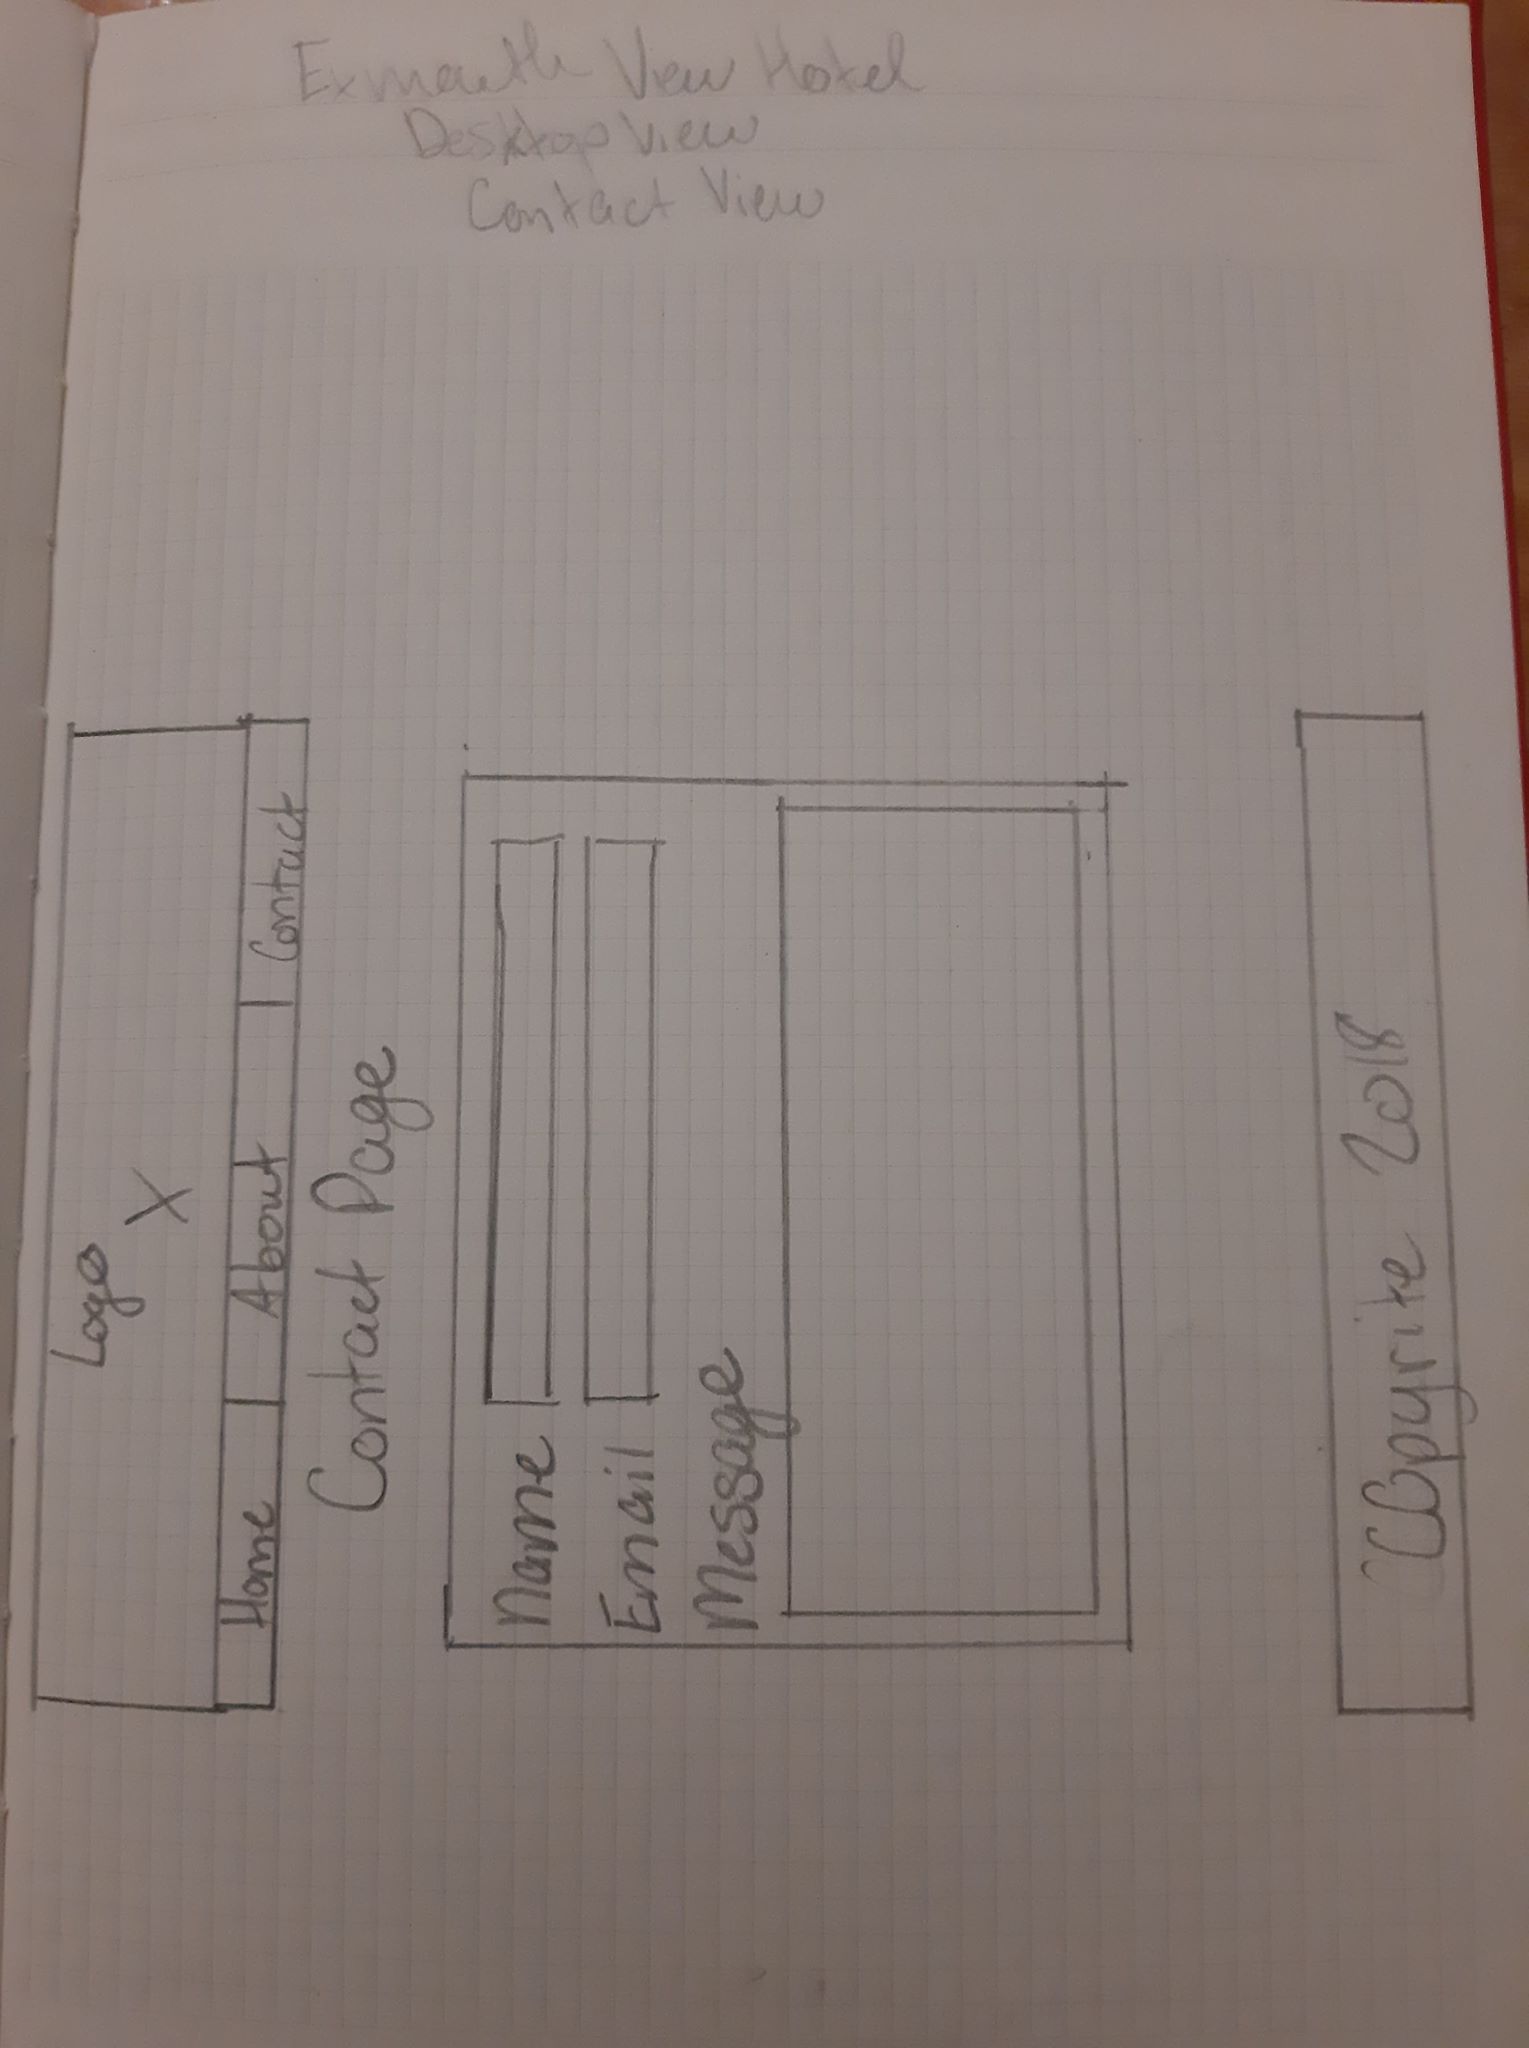 Exmouth View Hotel
Desktop View
Contact View
Logo
X
Home About Contact
Contact Page
Name
Email
Message
Copyrite 2018